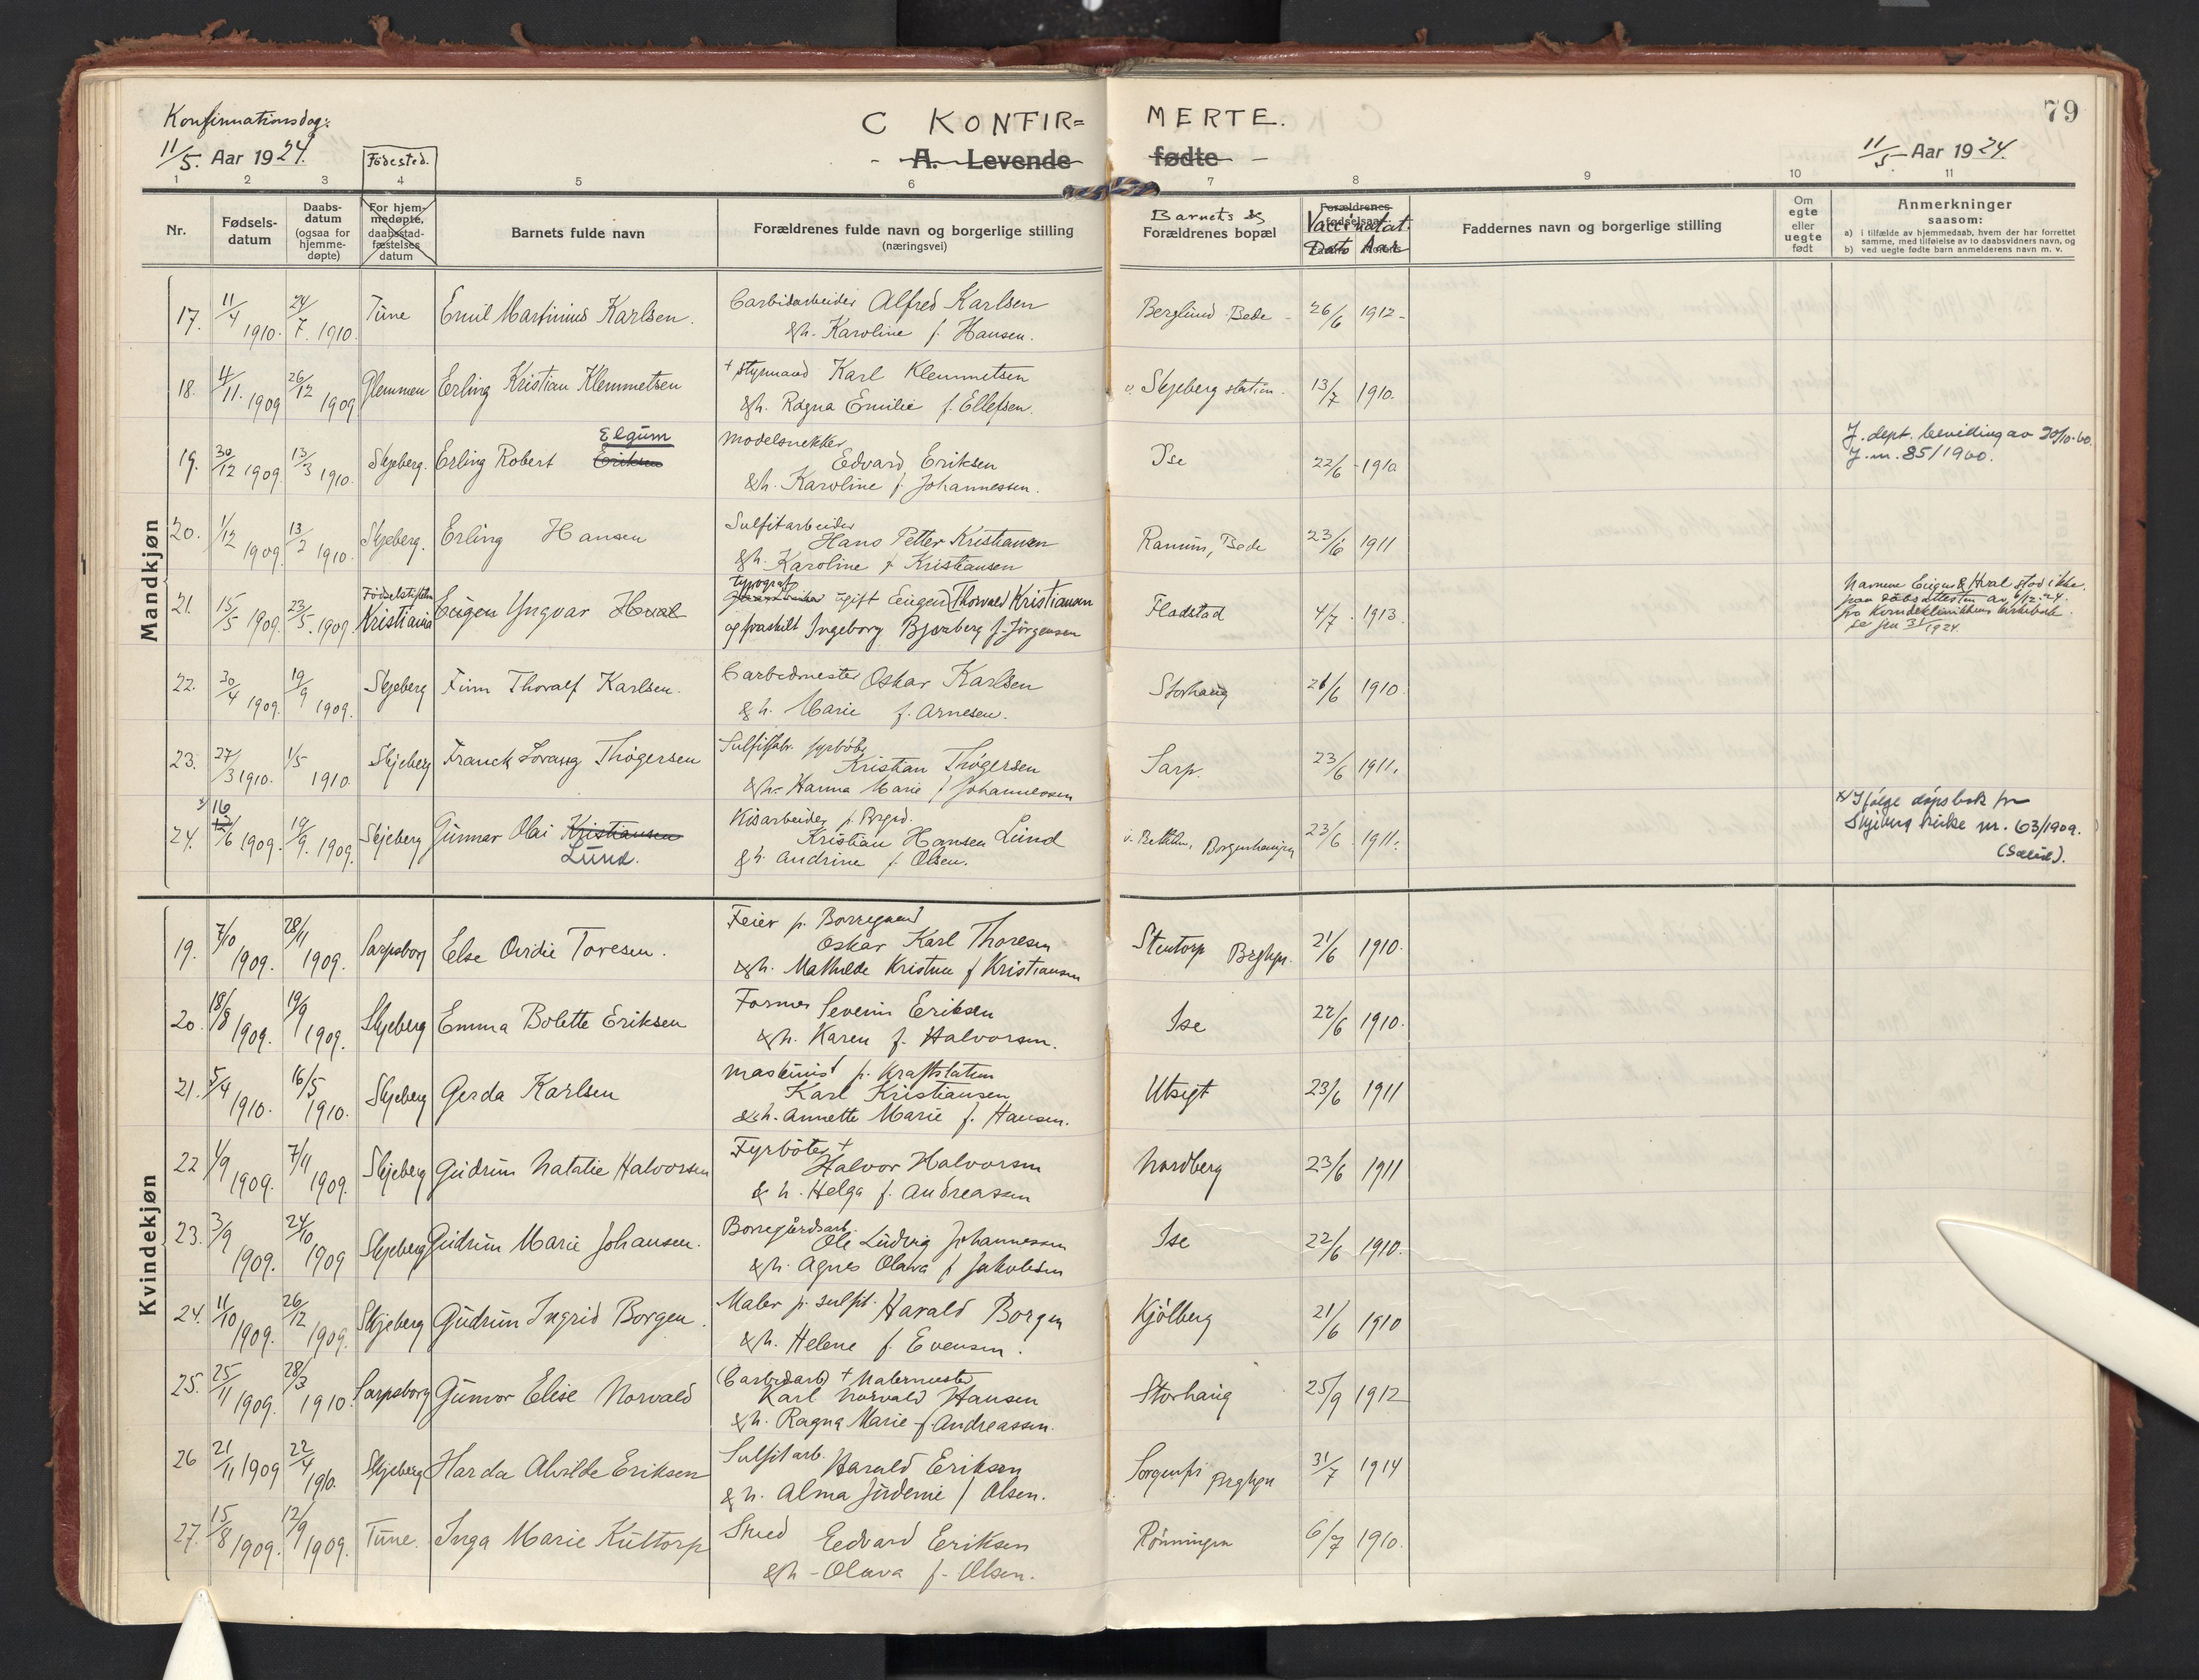 Konfirmationsdag:
11/5. Aar 1924.
C KONFIR= MERTE.
79
A. Levende fødte
11/5 Aar 1924.
Fødested.
1 2 3 4 5 6 7 8 9 10 11
Nr.
Fødsels-
datum
Daabs-
datum
(ogsaa for
hjemme-
døpte)
For hjem-
medøpte,
daabsstad-
fæstelses
datum
Barnets fulde navn
Forældrenes fulde navn og borgerlige stilling
(næringsvei)
Barnets &
Forældrenes bopæl
Forældrenes
fødselsaar
Vaccinatat.
Dato Aar
Faddernes navn og borgerlige stilling
Om
egte
eller
uegte
født
Anmerkninger
saasom:
a) i tilfælde av hjemmedaab, hvem der har forrettet
samme, med tilføielse av to daabsvidners navn, og
b) ved uegte fødte barn anmelderens navn m. v.
Mandkjøn
17. 11/4 1910. 24/7. 1910. Tune Emil Martinius Karlsen. Carbidarbeider Alfred Karlsen
&h. Karoline f. Hansen.
Berglund Bede - 26/6 1912-
18. 4/11. 1909 26/12 1909 Glemmen Erling Kristian Klemmetsen + Styrmand Karl Klemmetsen
&h. Ragna Emilie f. Ellefsen.
v. Skjeberg station. 13/7 1910.
19. 30/12 1909. 13/3 1910. Skjeberg. Erling Robert Eriksen Elgum
Modelsnekker
Edvard Eriksen
&h. Karoline f. Johannessen.
Ise 22/6 - 1910
J. dept. bevilling av 20/10-60.
J. nr. 85/1960.
20. 1/12 1909 13/2 1910. Skjeberg. Erling Hansen
Sulfitarbeider
Hans Petter Kristiansen
&h. Karoline f. Kristiansen
Ramum, Bede 23/6 1911
21. 15/5 1909. 23/5. 1909. Fødselstiftelsen
Kristiania Eugen Yngvar Hval
typograf
gift Eugen Thorvald Kristiansen
og fraskilt Ingeborg Bjerzberg f. Jörgensen
Fladstad 4/7. 1913.
Navnene Eugen & Hval stod ikke
paa daabsattesten av 6/12-24.
fra Kvindeklinikkens kirkebok
22. 30/4 1909. 19/9 1909. Skjeberg Finn Thoralf Karlsen.
Carbidmester Oskar Karlsen
& h. Marie f. Arnesen.
Storhaug 21/6 1910.
23. 27/3 1910. 1/5 1910 Skjeberg Franck Lorang Thøgersen
Sulfitfabr. fyrbøter
Kristian Thøgersen
&h. Hanna Marie f Johannessen
Sarp. 23/6 1911.
24. x) 16/6 1909. 19/9. 1909. Skjeberg Gunnar Olai Kristiansen
Lund.
Kisarbeider p. Brgrd.
Kristian Hansen Lund
& h. Andrine f Olsen.
Borgenhaugen 23/6 1911.
x) Ifølge dåpsbok for
Skjeberg kirke nr. 63/1909.
Kvindekjøn
19. 7/10 1909. 28/11 1909. Sarpsborg Else Ovidie Toresen.
Feier p. Borregaard
Oskar Karl Thoresen
&h. Mathilde Kristine f Kristiansen
Stentorp Brghgn. 21/6 1910.
20. 18/8 1909. 19/9 1909. Skjeberg Emma Bolette Eriksen
Former Severin Eriksen
&h. Karen f. Halvorsen.
Ise 22/6 1910.
21. 5/4 1910. 16/5 1910. Skjeberg Gerda Karlsen
Maskinist p. Kraftstation
Karl Kristiansen
&h. Annette Marie f. Hansen.
Utsigt 23/6 1911
22 1/9 1909. 7/11 1909. Skjeberg Gudrun Natalie Halvorsen
Fyrbøter +
Halvor Halvorsen
& h. Helga f. Andreassen
Nordberg 23/6 1911
23. 3/9 1909. 24/10 1909 Skjeberg Gudrun Marie Johansen.
Borregårdsarb.
Ole Ludvig Johannessen
&h. Agnes Olava f Jakobsen
Ise 22/6 1910.
24. 11/10 1909. 26/12 1909. Skjeberg Gudrun Ingrid Borgen.
Maler p. sulfit. Harald Borgen
&h. Helene f. Evensen.
Kjølberg 21/6 1910
25. 25/11 1909. 28/3 1910. Sarpsborg Gunvor Elise Norvald
(Carbidarb) + Malermester
Karl Norvald Hansen
&h. Ragna Marie f Andreassen.
Storhaug 25/9 1912
26 21/11 1909 22/4 1910. Skjeberg Harda Alvilde Eriksen
Sulfitarb.
Harald Eriksen
& h. Alma f Olsen.
Sorgenfri Brghgn 31/7 1914
27. 15/8 1909. 12/9 1909. Tune. Inga Marie Kultorp
Smed Edvard Eriksen
&h - Olava f. Olsen.
Rönningen 6/7 1910.